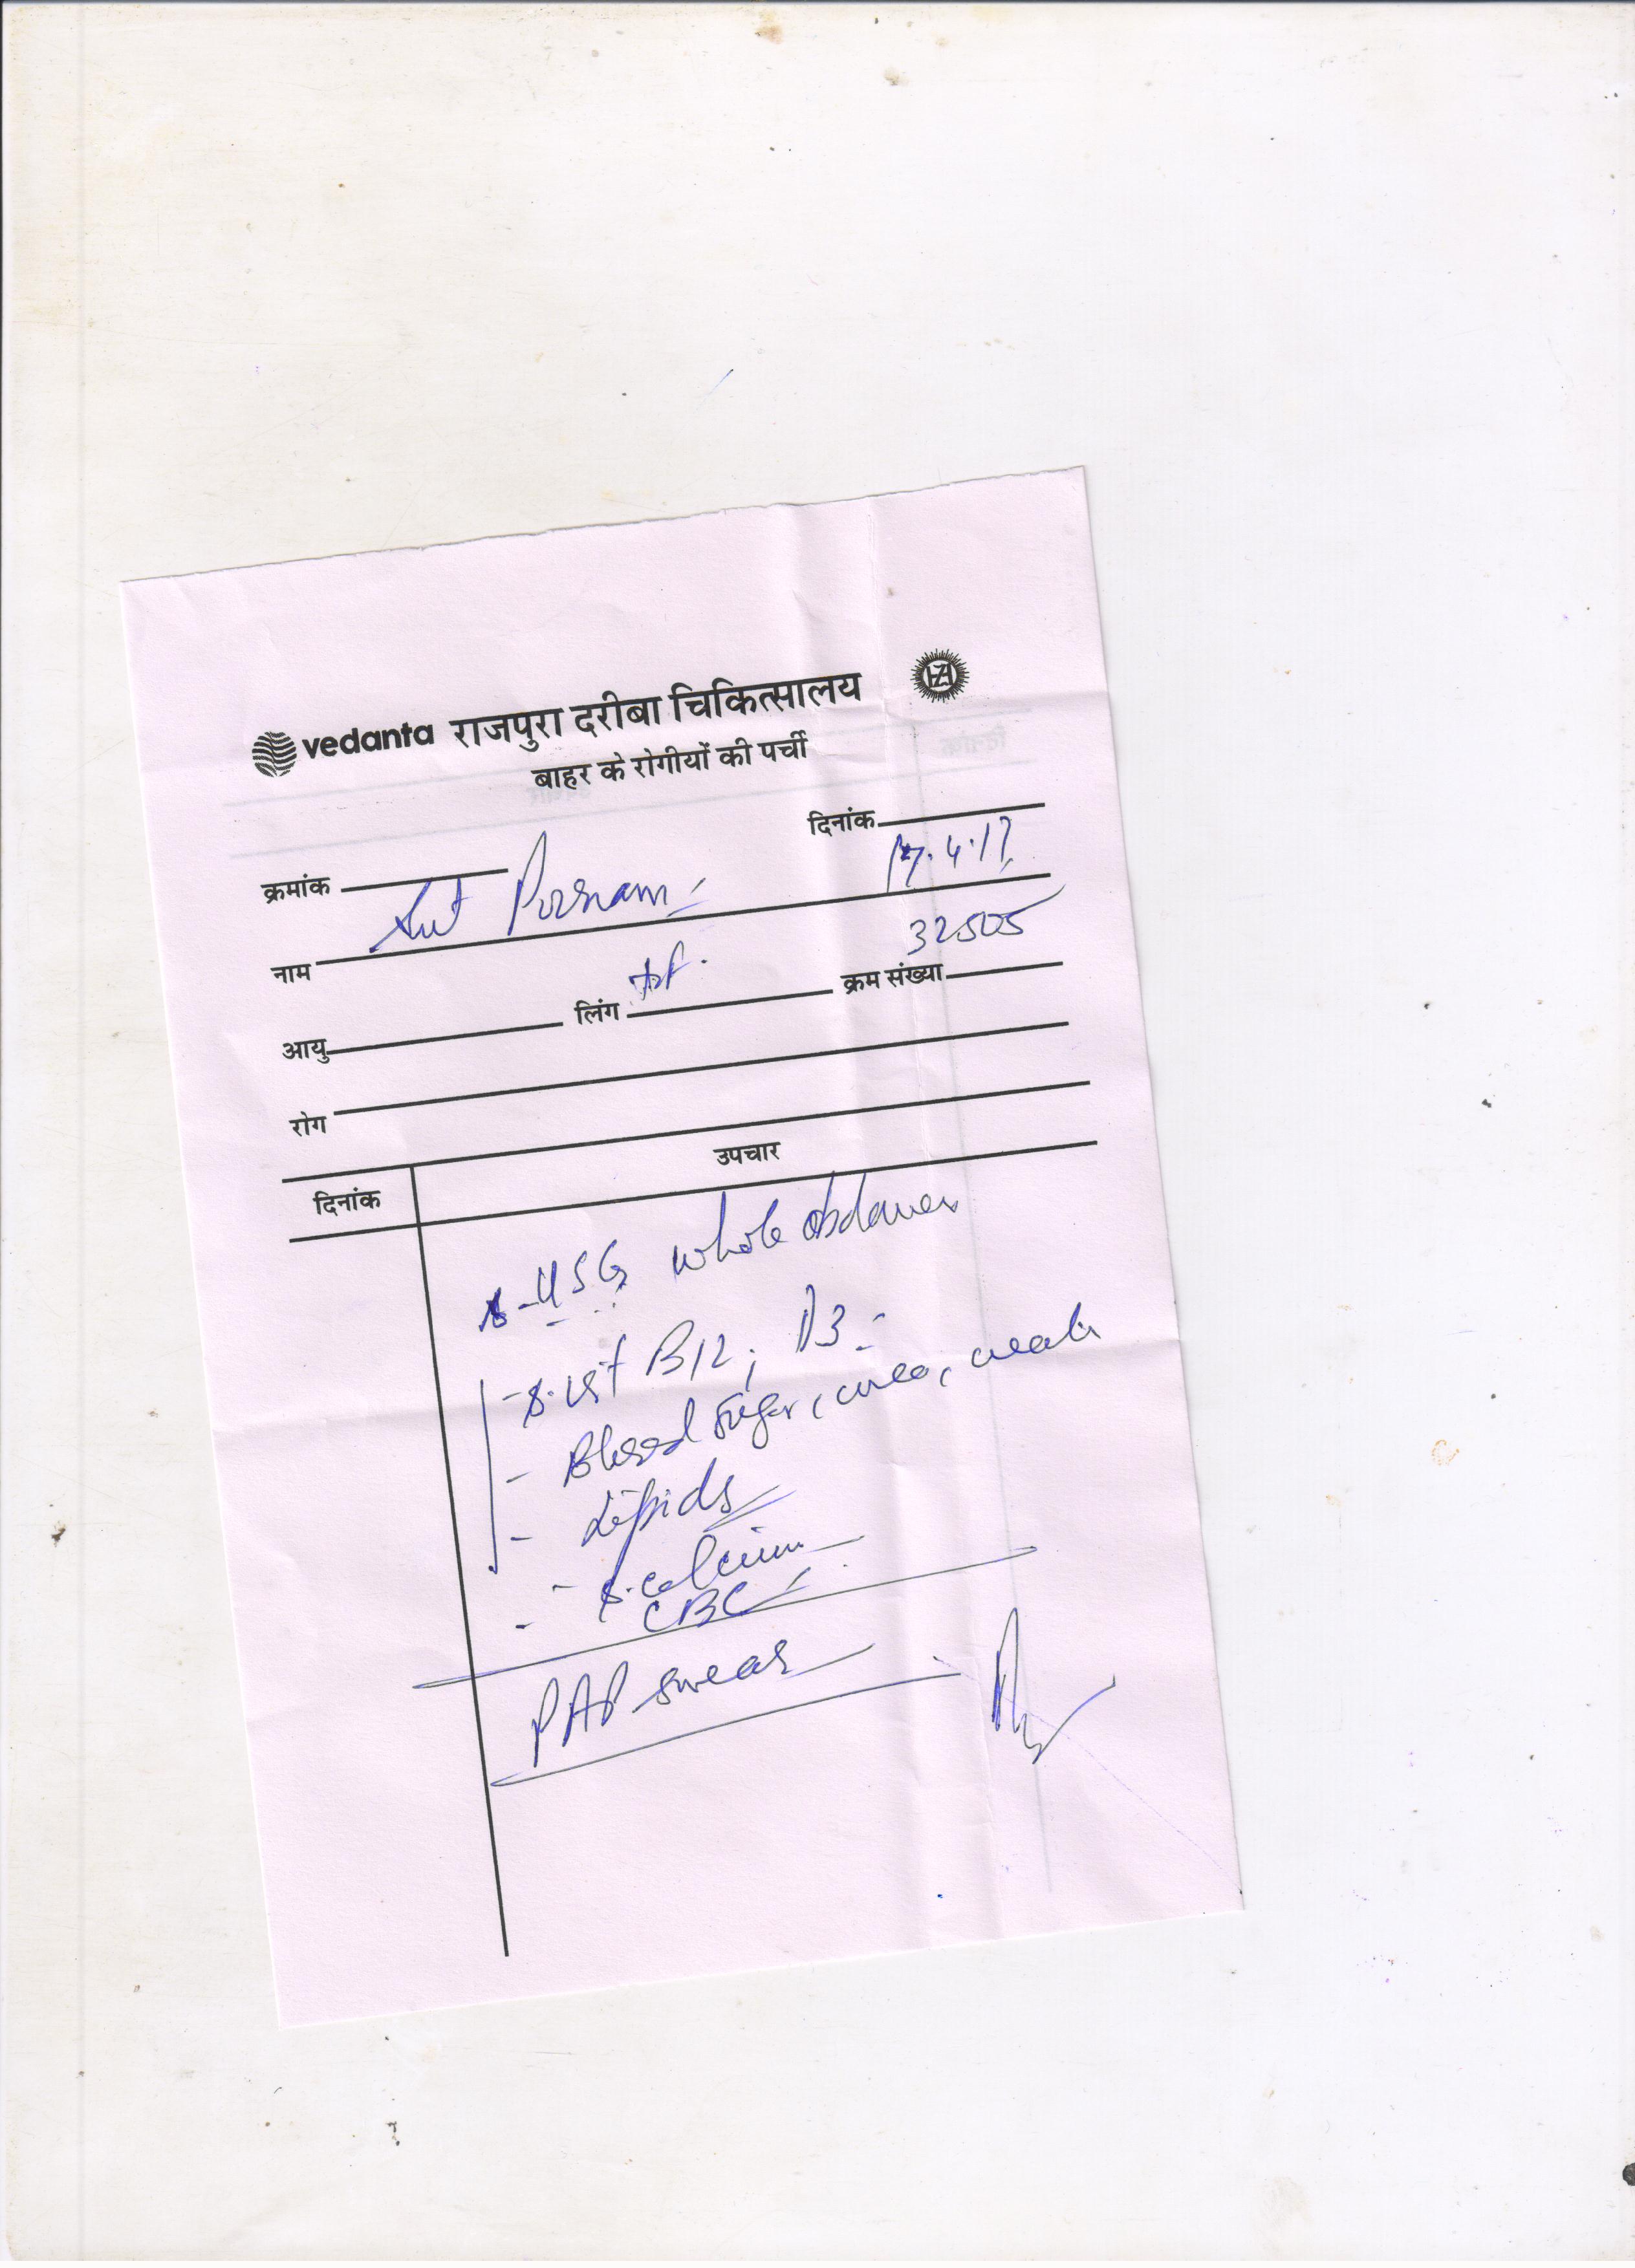 vedanta राजपुरा दरीबा चिकित्सालय
HZL
बाहर के रोगीयों की पर्ची
दिनांक
17.4.17
क्रमांक
नाम Smt Poonam
32505
आयु लिंग क्रम संख्या
रोग
दिनांक उपचार
- USG whole abdomen
- S. Vit B12, D3
- Blood sugar, urea, creat
- Lipids
- S. calcium
- CBC
PAP smear